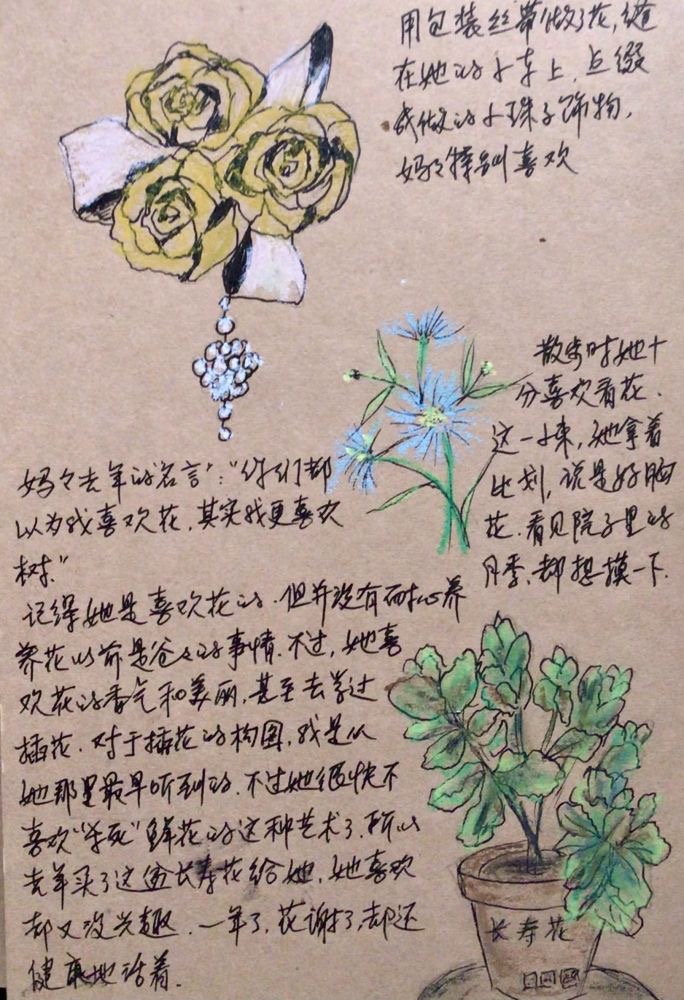 用包装丝带做了花,缝
在她的小车上,点缀
我做的小珠子饰物,
妈々特别喜欢
散步时她十
分喜欢看花.
这一小束,她拿着
比划,说是好胸
花.看见院子里的
月季,却想摸一下.
妈々去年的名言:“你们都
以为我喜欢花,其实我更喜欢
树.”
记得她是喜欢花的.但并没有耐心养
养花以前是爸々的事情.不过,她喜
欢花的香气和美丽,甚至去学过
插花.对于插花的构图,我是从
她那里最早听到的.不过她很快不
喜欢“弄死”鲜花的这种艺术了.所以
去年买了这盆长寿花给她,她喜欢
却又没兴趣.一年了,花谢了,却还
健康地活着.
长寿花